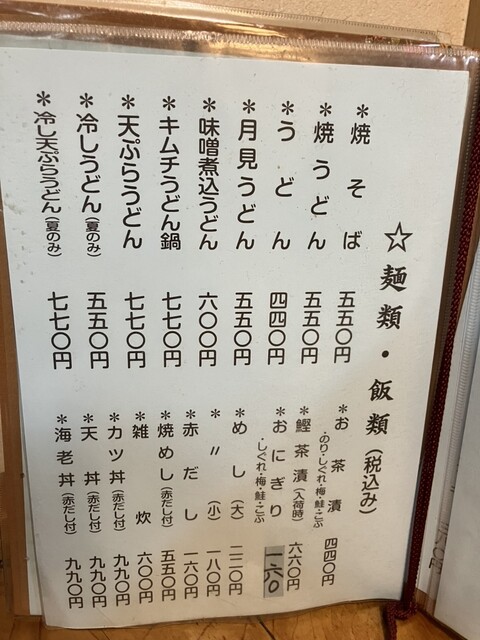 ☆麺類・飯類(税込み)
＊焼そば 五五〇円
＊焼うどん 五五〇円
＊うどん 四四〇円
＊月見うどん 五五〇円
＊味噌煮込うどん 六〇〇円
＊キムチうどん鍋 七七〇円
＊天ぷらうどん 七七〇円
＊冷しうどん(夏のみ) 五五〇円
＊冷し天ぷらうどん(夏のみ) 七七〇円
＊お茶漬 四四〇円
・のり・しぐれ・梅・鮭・こぶ
＊鰹茶漬(入荷時) 六六〇円
＊おにぎり 一六〇
・しぐれ・梅・鮭・こぶ
＊めし(大) 二二〇円
＊〃(小) 一八〇円
＊赤だし 一六〇円
＊焼めし(赤だし付) 五五〇円
＊雑炊 六〇〇円
＊カツ丼(赤だし付) 九九〇円
＊天丼(赤だし付) 九九〇円
＊海老丼(赤だし付) 九九〇円